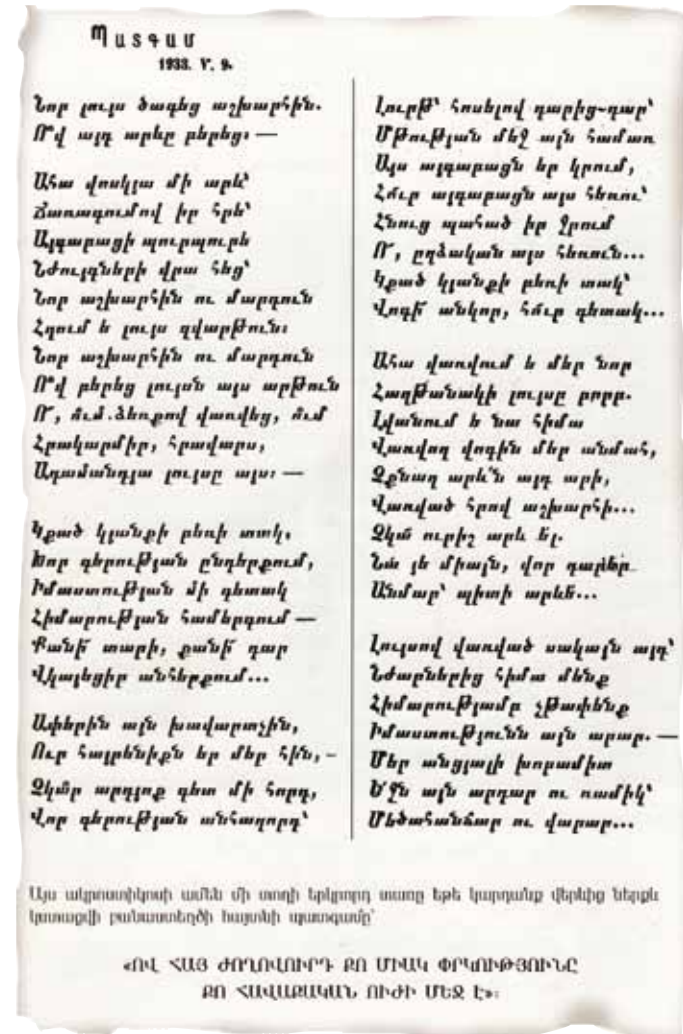 Պատգամ
1933. V. 9.
Նոր լույս ծագեց աշխարհին.
Ո՞վ այդ արևը բերեց։ —
Ահա վոսկյա մի արև՝
Ճառագումով իր հրե՝
Այգաբացի պուրպուրե
Նժույգների վրա հեց՝
Նոր աշխարհին ու մարդուն
Հղում ե լույս զվարթուն։
Նոր աշխարհին ու մարդուն
Ո՞վ բերեց լույսն այս արթուն
Ո՛, ո՛ւմ ձեռքով վառվեց, ո՛ւմ
Հրակարմիր, հրավառս,
Ադամանդյա լույսը այս։ —
Կքած կյանքի բեռի տակ,
Խոր գերության ընդերքում,
Իմաստության մի գետակ
Հիմարության համերգում —
Քանի՜ տարի, քանի՜ դար
Վկայեցիր անհերքում...
Ափերին այն խավարտչին,
Ուր հայրենիքն եր մեր հին, –
Չկա՞ր արդյոք գետ մի հորդ,
Վոր գերության անհաղորդ՝
Լուրթ՝ հոսելով դարից-դար՝
Մթության մեջ այն համառ
Այս այգաբացն եր կրում,
Հո՛ւր այգաբացն այս հեռու՝
Հնուց պահած իր ջրում
Ո՛, ըղձական այս հեռուն...
Կքած կյանքի բեռի տակ՝
Վոգի՜ անկոր, հո՛ւր գետակ...
Ահա վառվում ե մեր նոր
Հաղթանակի լույսը բորբ.
Լվանում ե նա հիմա
Վառվող վոգին մեր անմահ,
Չքնաղ արև՛ն այդ արի,
Վառված հրով աշխարհի...
Չկա՛ ուրիշ արև ել.
Նա յե միայն, վոր դարեր
Անմար՝ պիտի արևե՜...
Լույսով վառված սակայն այդ՝
Նժարներից հիմա մենք
Հիմարությամբ չթափենք
Իմաստությունն այն արար. —
Մեր անցյալի խորամիտ
Ե՛ջն այն արդար ու ռամիկ՝
Մեծահանճար ու վարար...
Այս ակրոստիկոսի ամեն մի տողի երկրորդ տառը եթե կարդանք վերևից ներքև
կստացվի բանաստեղծի հայտնի պատգամը՝
«ՈՎ ՀԱՅ ԺՈՂՈՎՈՒՐԴ ՔՈ ՄԻԱԿ ՓՐԿՈՒԹՅՈՒՆԸ
ՔՈ ՀԱՎԱՔԱԿԱՆ ՈՒԺԻ ՄԵՋ Է»: